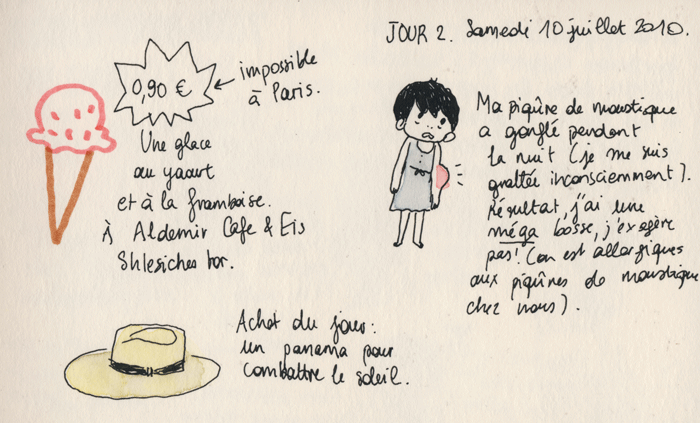 JOUR 2. Samedi 10 juillet 2010.
0,90 €
impossible
à Paris.
Une glace
au yaourt
et à la framboise.
À Aldemir Cafe & Eis
Shlesiches tor.
Ma piqûre de moustique
a gonflé pendant
la nuit (je me suis
grattée inconsciemment).
Résultat, j'ai une
méga bosse, j'exagère
pas! (on est allergiques
aux piqûres de moustique
chez nous).
Achat du jour:
un panama pour
combattre le soleil.